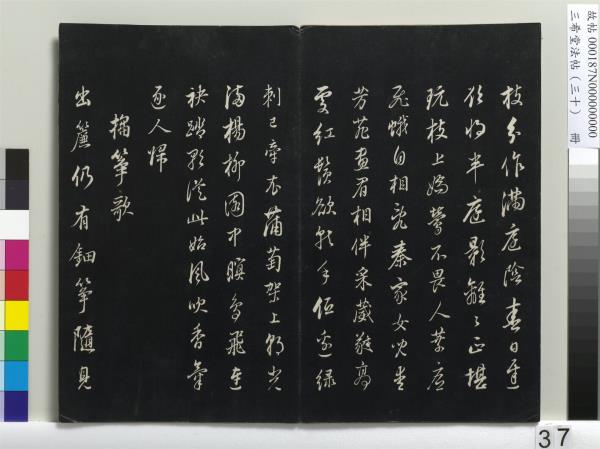 故帖 000187N000000000
三希堂法帖（三十） 冊
枝分作滿庭陰春日遲
欲將半庭影離々正堪
玩枝上嬌鶯不畏人葉底
飛蛾自相亂秦家女兒愛
芳菲畫眉相伴采葳蕤高
處紅鬚欲就手低邊綠
刺已牽衣蒲萄架上朝光
滿楊柳園中暝鳥飛連
袂踏歌從此始風吹香氣
逐人歸
搊箏歌
出簾仍有鈿箏隨見
37